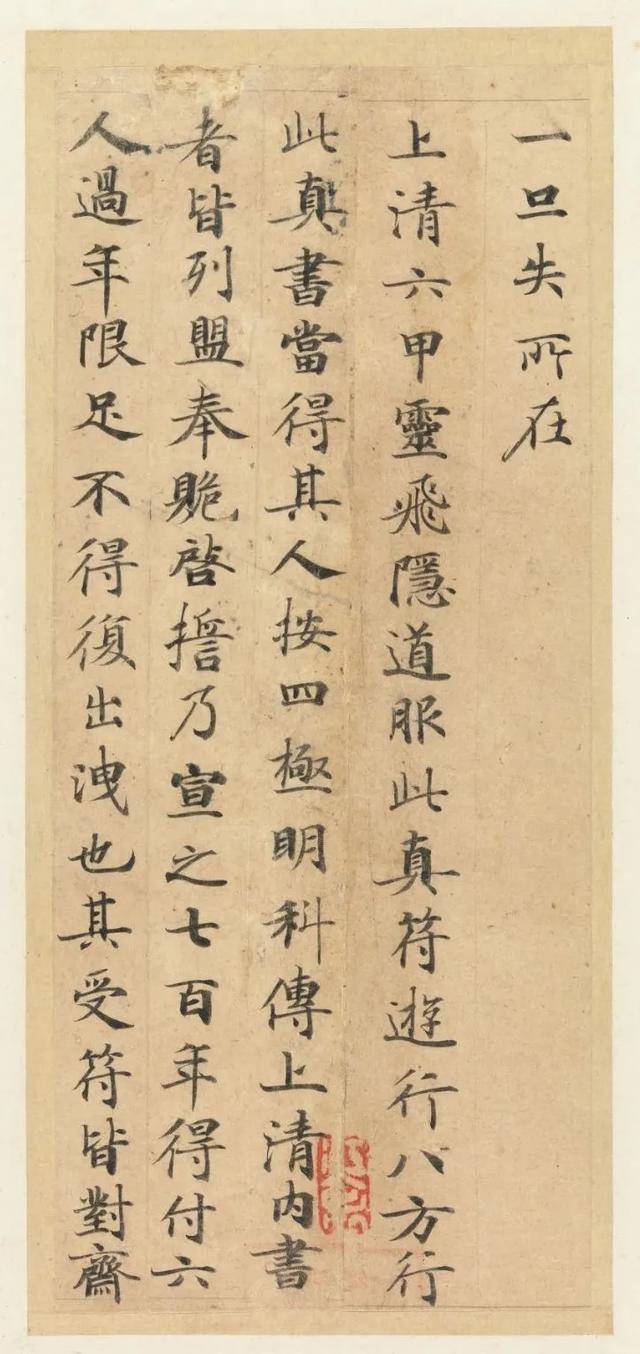 一旦失所在
上清六甲靈飛隱道服此真符遊行八方行
此真書當得其人按四極明科傳上清内書
者皆列盟奉贶啓誓乃宣之七百年得付六
人過年限足不得復出洩也其受符皆對齋